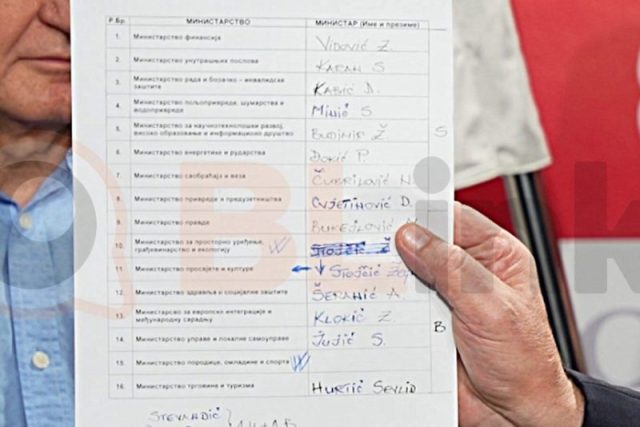 Р.Бр. МИНИСТАРСТВО МИНИСТАР (Име и презиме)
1. Министарство финансија Vidović Ž.
2. Министарство унутрашњих послова Karan S
3. Министарство рада и борачко – инвалидске
заштите Kabić D.
4. Министарство пољопривреде, шумарства и
водопривреде Minić S.
5. Министарство за научнотехнолошки развој,
високо образовање и информационо друштво Budimir Ž. S
6. Министарство енергетике и рударства Đokić P.
7. Министарство саобраћаја и веза Čubrilović N.
8. Министарство привреде и предузетништва Cvjetinović D.
9. Министарство правде Bukejlović
10. Министарство за просторно уређење,
грађевинарство и екологију Stojčić Ž
11. Министарство просвјете и културе Stojčić
12. Министарство здравља и социјалне заштите Šeranić A.
13. Министарсво за европске интеграције и
међународну сарадњу Klokić Z. B
14. Министарство управе и локалне самоуправе Jujić S.
15. Министарство породице, омладине и спорта
16. Министарство трговина и туризма Hurtić Sevlid
Stevandić